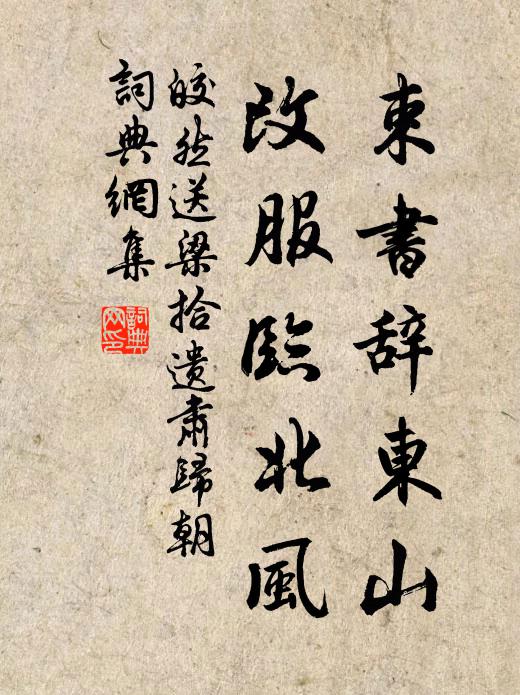 束書辞東山
改服臨北風
皎然送梁拾遺肅歸朝
詞典網集
詞典網印